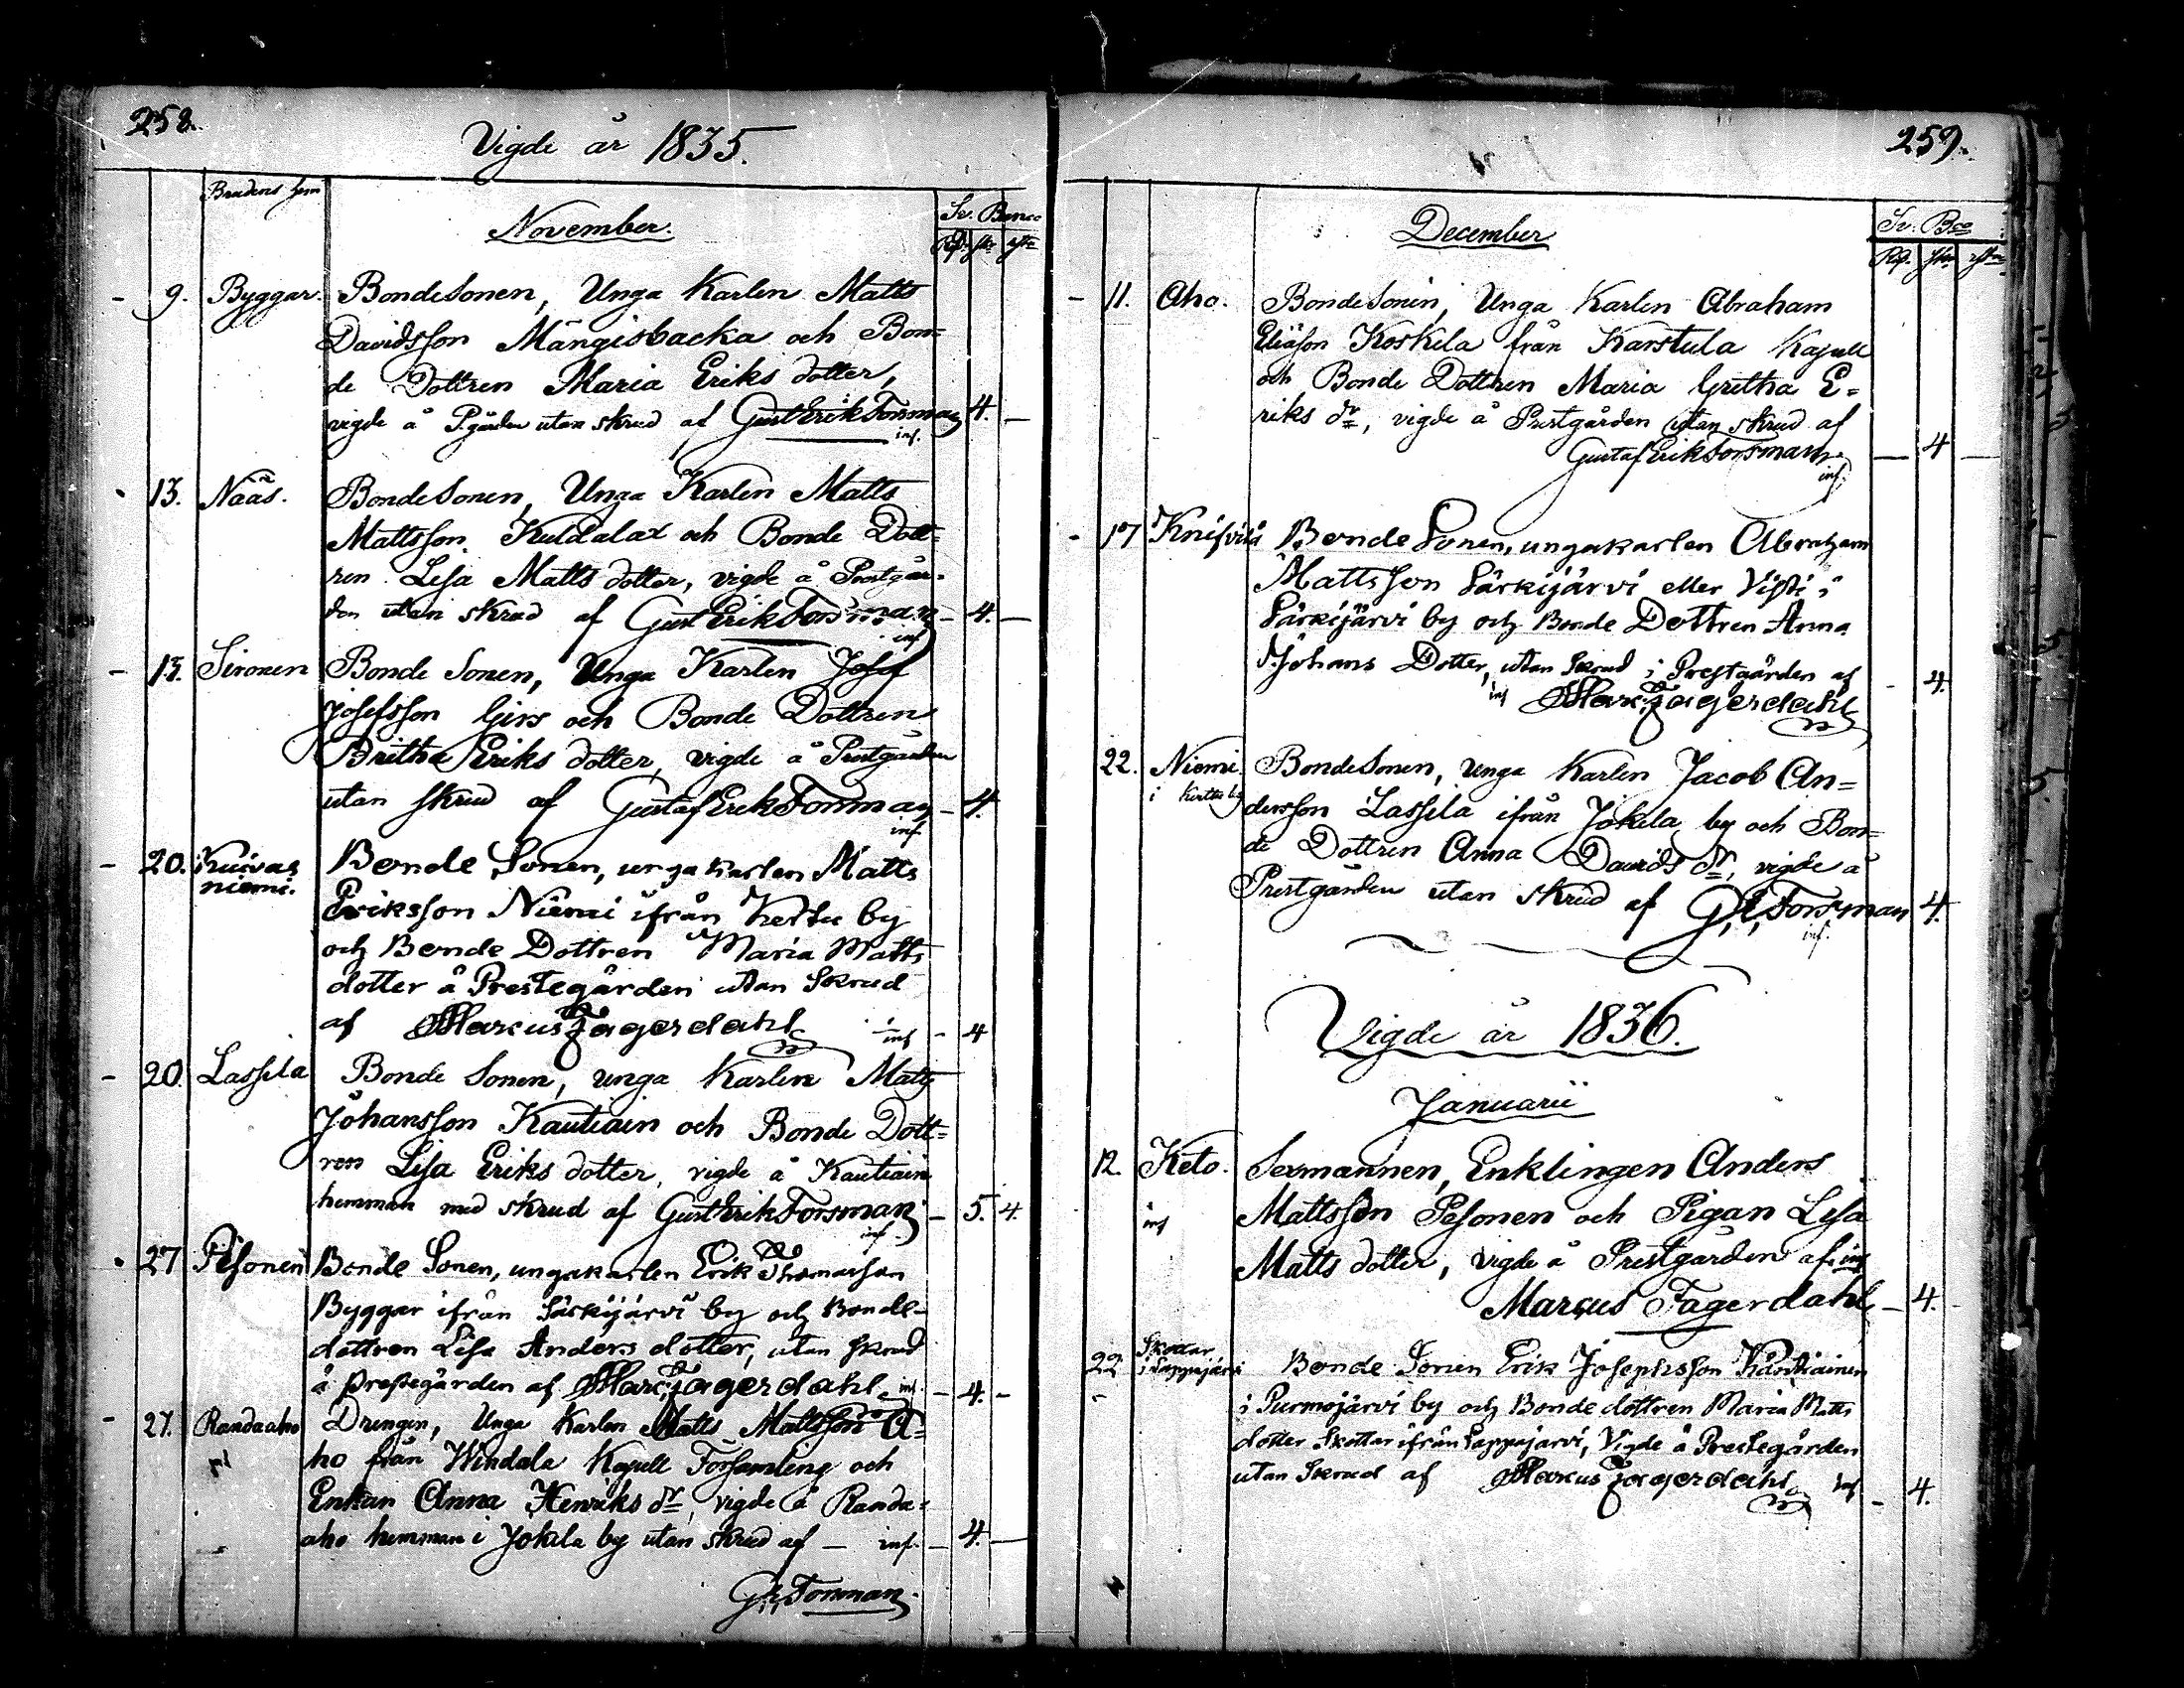 258.
Vigde år 1835.
Brudens hem
Sv. Banco
November.
9. Byggar. Bondesonen, Unga Karlen Matts
Davidsson Mängisbacka och Bon-
de Dottren Maria Eriks dotter,
vigde å Pgården utan skrud af Gust Erik Forsman 4. —
inf.
13. Nääs. Bondesonen, Unga Karlen Matts
Mattsson Kuldalax och Bonde Dott-
ren Lisa Matts dotter, vigde å Prestgår-
den utan skrud af Gust Erik Forsman — 4. —
inf
13. Sironen Bonde Sonen, Unga Karlen Josef
Josefsson Girs och Bonde Dottren
Britha Eriks dotter, vigde å Prestgården
utan skrud af Gustaf Erik Forsman — 4.
inf
20. Kuivas Bonde Sonen, unga karlen Matts
niemi.
Eriksson Niemi ifrån Kerttu by
och Bonde Dottren Maria Matts
dotter å Prestegården utan Skrud
af Marcus Fagerdahl inf — 4
20. Lassila Bonde Sonen, unga Karlen Matts
Johansson Kautiain och Bonde Dott-
ren Lisa Eriks dotter, vigde å Kautiain
hemman med skrud af Gust Erik Forsman — 5. 4.
inf.
27 Pesonen Bonde Sonen, ungakarlen Erik Thomasson
Byggar ifrån Särkijärvi by och Bonde-
dottren Lisa Anders dotter, utan skrud
å prestegården af Marc: Fagerdahl inf. — 4. —
27. Randaaho Drengen, Unga Karlen Matts Mattsson A-
ho från Windala Kapell Forsamling och
Enkan Anna Henriks dr, vigde å Randa-
aho hemman i Jokela by utan skrud af — inf. — 4. —
G. E. Forsman
259.
December
Sv. Bco
11. Aho. Bondesonen, Unga Karlen Abraham
Eliäson Koskela från Karstula Kapell
och Bonde Dottren Maria Gretha E-
riks dr, vigde å Prestgården utan skrud af
Gustaf Erik Forsman — 4 —
inf.
17 Bonde Sonen, ungakarlen Abraham
Mattsson Särkijärvi eller Visti i
Särkijärvi by och Bonde Dottren Anna
Johans Dotter, utan Skrud i Prestgården af
inf Marc: Fagerdahl — 4.
22. Niemi. Bondesonen, Unga Karlen Jacob An-
i Kerttu by
dersson Lassila ifrån Jokela by och Bon-
de Dottren Anna Davids dr, vigde å
Prestgården utan skrud af G. E. Forsman 4.
inf.
Vigde år 1836.
Januarii
12. Keto. Sexmannen, Enklingen Anders
inf Mattsson Pesonen och Pigan Lisa
Matts dotter, vigde å Prestgården af inf
Marcus Fagerdahl — 4.
22 Skottar
i Lappajärvi Bonde Sonen Erik Josephsson Kautiainen
i Purmojärvi by och Bonde dottren Maria Matts
dotter Skottar ifrån Lappajärvi, Vigde å Prestegården
utan Skrud af Marcus Fagerdahl inf — 4.